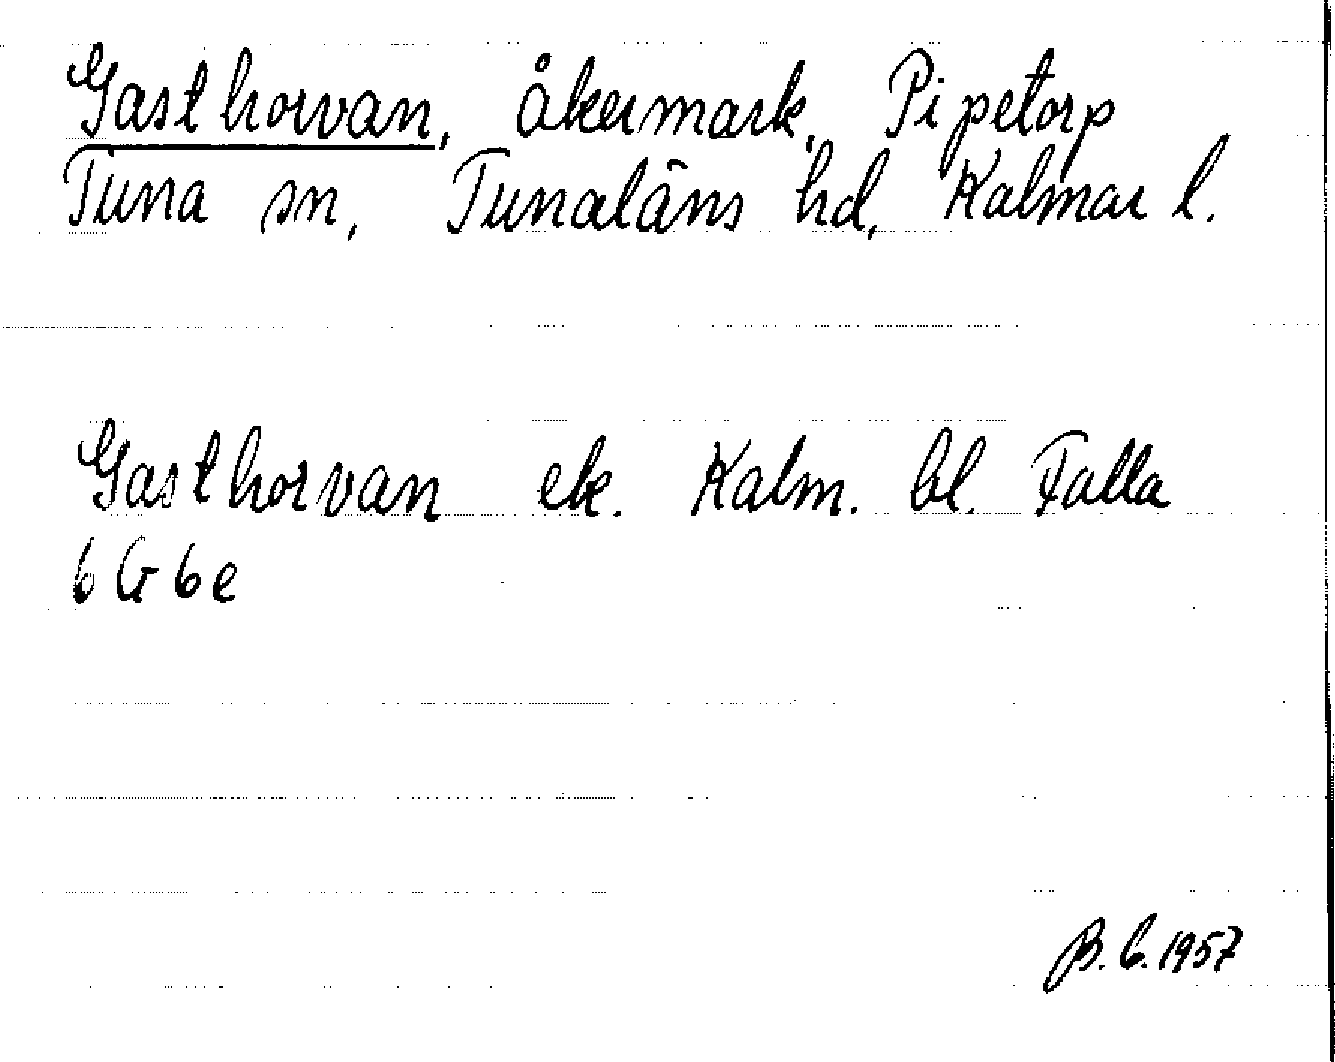 Gasthorvan, åkermark, Pipetorp
Tuna sn, Tunaläns hd, Kalmar l.
Gasthorvan ek. Kalm. bl. Falla
6 G 6 e
B. C. 1957